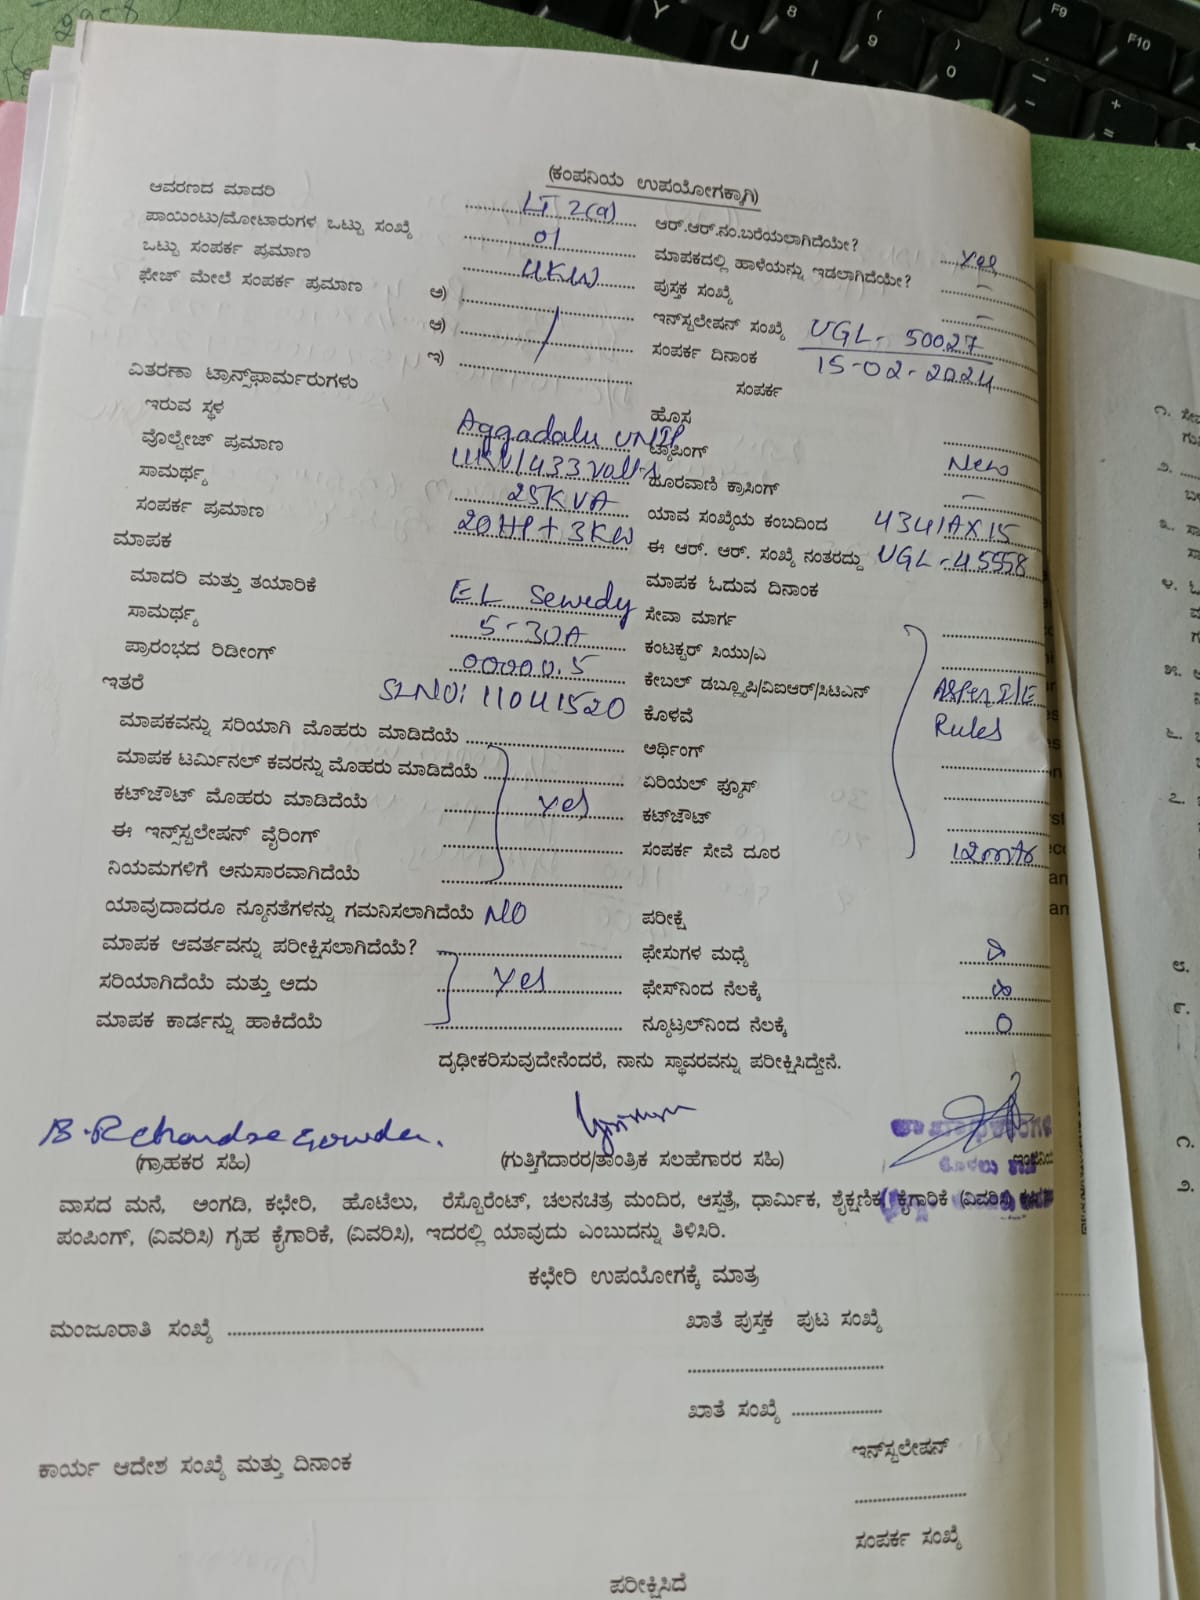 (ಕಂಪನಿಯ ಉಪಯೋಗಕ್ಕಾಗಿ)
ಆವರಣದ ಮಾದರಿ LT 2(a) ಆರ್.ಆರ್.ನಂ.ಬರೆಯಲಾಗಿದೆಯೇ? Yes
ಪಾಯಿಂಟು/ಮೋಟಾರುಗಳ ಒಟ್ಟು ಸಂಖ್ಯೆ 01 ಮಾಪಕದಲ್ಲಿ ಹಾಳೆಯನ್ನು ಇಡಲಾಗಿದೆಯೇ? –
ಒಟ್ಟು ಸಂಪರ್ಕ ಪ್ರಮಾಣ 4KW ಪುಸ್ತಕ ಸಂಖ್ಯೆ –
ಫೇಜ್ ಮೇಲೆ ಸಂಪರ್ಕ ಪ್ರಮಾಣ ಅ) ಇನ್‌ಸ್ಟಲೇಷನ್ ಸಂಖ್ಯೆ UGL- 50027
ಆ) / ಸಂಪರ್ಕ ದಿನಾಂಕ 15-02-2024
ಇ) ಸಂಪರ್ಕ
ವಿತರಣಾ ಟ್ರಾನ್ಸ್‌ಫಾರ್ಮರುಗಳು ಹೊಸ
ಇರುವ ಸ್ಥಳ Aggadalu ಟ್ಯಾಪಿಂಗ್ New
ವೊಲ್ಟೇಜ್ ಪ್ರಮಾಣ 11KV/433 Volts ದೂರವಾಣಿ ಕ್ರಾಸಿಂಗ್ –
ಸಾಮರ್ಥ್ಯ 25KVA ಯಾವ ಸಂಖ್ಯೆಯ ಕಂಬದಿಂದ 4341AX15
ಸಂಪರ್ಕ ಪ್ರಮಾಣ 20HP + 3KW ಈ ಆರ್. ಆರ್. ಸಂಖ್ಯೆ ನಂತರದ್ದು UGL-45558
ಮಾಪಕ ಮಾಪಕ ಓದುವ ದಿನಾಂಕ
ಮಾದರಿ ಮತ್ತು ತಯಾರಿಕೆ EL Sewedy ಸೇವಾ ಮಾರ್ಗ
ಸಾಮರ್ಥ್ಯ 5-30A ಕಂಟಕ್ಟರ್ ಸಿಯು/ಎ
ಪ್ರಾರಂಭದ ರಿಡೀಂಗ್ 00000.5 ಕೇಬಲ್ ಡಬ್ಲ್ಯೂಪಿ/ವಿಐಆರ್/ಸಿಟಿಎನ್ As per I/E
ಇತರೆ SL NO: 11041520 ಕೊಳವೆ Rules
ಮಾಪಕವನ್ನು ಸರಿಯಾಗಿ ಮೊಹರು ಮಾಡಿದೆಯೆ ಅರ್ಥಿಂಗ್
ಮಾಪಕ ಟರ್ಮಿನಲ್ ಕವರನ್ನು ಮೊಹರು ಮಾಡಿದೆಯೆ ಏರಿಯಲ್ ಫ್ಯೂಸ್
ಕಟ್‌ಜೌಟ್ ಮೊಹರು ಮಾಡಿದೆಯೆ Yes ಕಟ್‌ಜೌಟ್
ಈ ಇನ್ಸ್‌ಸ್ಟಲೇಷನ್ ವೈರಿಂಗ್ ಸಂಪರ್ಕ ಸೇವೆ ದೂರ 12mtr
ನಿಯಮಗಳಿಗೆ ಅನುಸಾರವಾಗಿದೆಯೆ
ಯಾವುದಾದರೂ ನ್ಯೂನತೆಗಳನ್ನು ಗಮನಿಸಲಾಗಿದೆಯೆ NO ಪರೀಕ್ಷೆ
ಮಾಪಕ ಆವರ್ತವನ್ನು ಪರೀಕ್ಷಿಸಲಾಗಿದೆಯೆ? ಫೇಸುಗಳ ಮಧ್ಯೆ ∞
ಸರಿಯಾಗಿದೆಯೆ ಮತ್ತು ಅದು Yes ಫೇಸ್‌ನಿಂದ ನೆಲಕ್ಕೆ ∞
ಮಾಪಕ ಕಾರ್ಡನ್ನು ಹಾಕಿದೆಯೆ ನ್ಯೂಟ್ರಲ್‌ನಿಂದ ನೆಲಕ್ಕೆ 0
ದೃಢೀಕರಿಸುವುದೇನೆಂದರೆ, ನಾನು ಸ್ಥಾವರವನ್ನು ಪರೀಕ್ಷಿಸಿದ್ದೇನೆ.
B.R Chandre Gowda.
(ಗ್ರಾಹಕರ ಸಹಿ) (ಗುತ್ತಿಗೆದಾರರ/ತಾಂತ್ರಿಕ ಸಲಹೆಗಾರರ ಸಹಿ)
ವಾಸದ ಮನೆ, ಅಂಗಡಿ, ಕಛೇರಿ, ಹೊಟೆಲು, ರೆಸ್ಟೊರೆಂಟ್, ಚಲನಚಿತ್ರ ಮಂದಿರ, ಆಸ್ಪತ್ರೆ, ಧಾರ್ಮಿಕ, ಶೈಕ್ಷಣಿಕ, ಕೈಗಾರಿಕೆ (ವಿವರಿಸಿ)
ಪಂಪಿಂಗ್, (ವಿವರಿಸಿ) ಗೃಹ ಕೈಗಾರಿಕೆ, (ವಿವರಿಸಿ), ಇದರಲ್ಲಿ ಯಾವುದು ಎಂಬುದನ್ನು ತಿಳಿಸಿರಿ.
ಕಛೇರಿ ಉಪಯೋಗಕ್ಕೆ ಮಾತ್ರ
ಮಂಜೂರಾತಿ ಸಂಖ್ಯೆ ಖಾತೆ ಪುಸ್ತಕ ಪುಟ ಸಂಖ್ಯೆ
ಖಾತೆ ಸಂಖ್ಯೆ
ಇನ್‌ಸ್ಟಲೇಷನ್
ಕಾರ್ಯ ಆದೇಶ ಸಂಖ್ಯೆ ಮತ್ತು ದಿನಾಂಕ
ಸಂಪರ್ಕ ಸಂಖ್ಯೆ
ಪರೀಕ್ಷಿಸಿದೆ